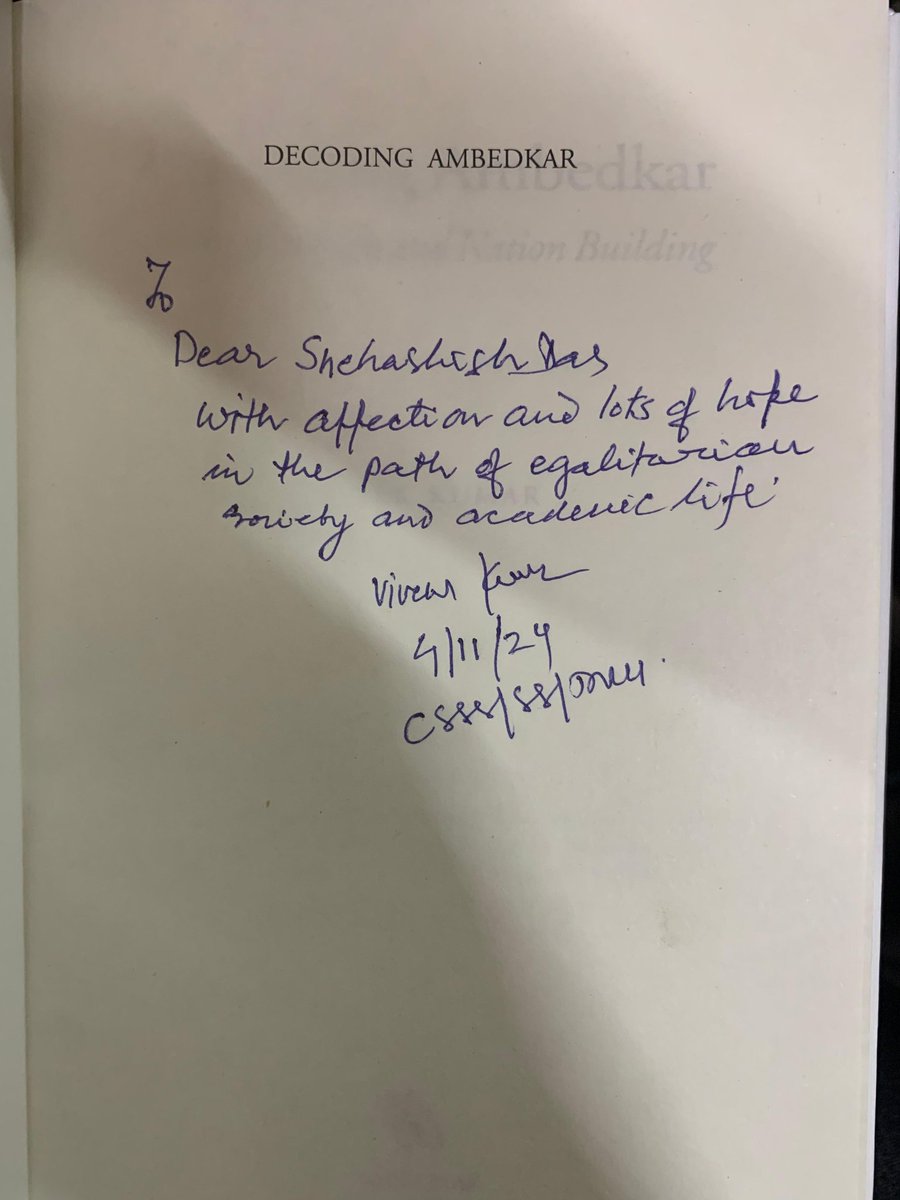 DECODING AMBEDKAR
Ambedkar
Nation Building
To
Dear Snehashish Das
With affection and lots of hope
in the path of egalitarian
society and academic life.
KUMAR
Vivek Kumar
4/11/24
CSSS/SS/JNU.